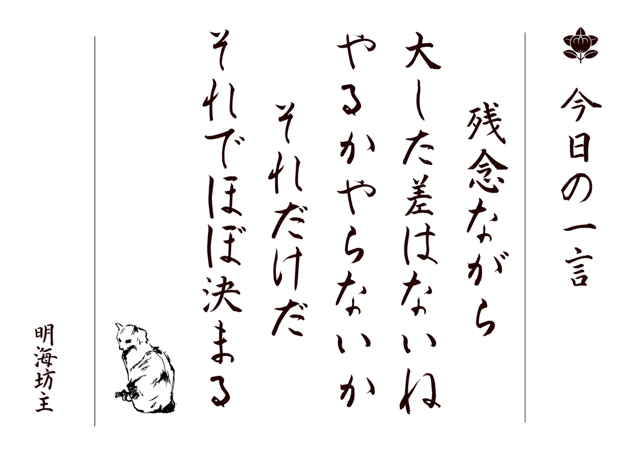 今日の一言
残念ながら
大した差はないね
やるかやらないか
それだけだ
それでほぼ決まる
明海坊主